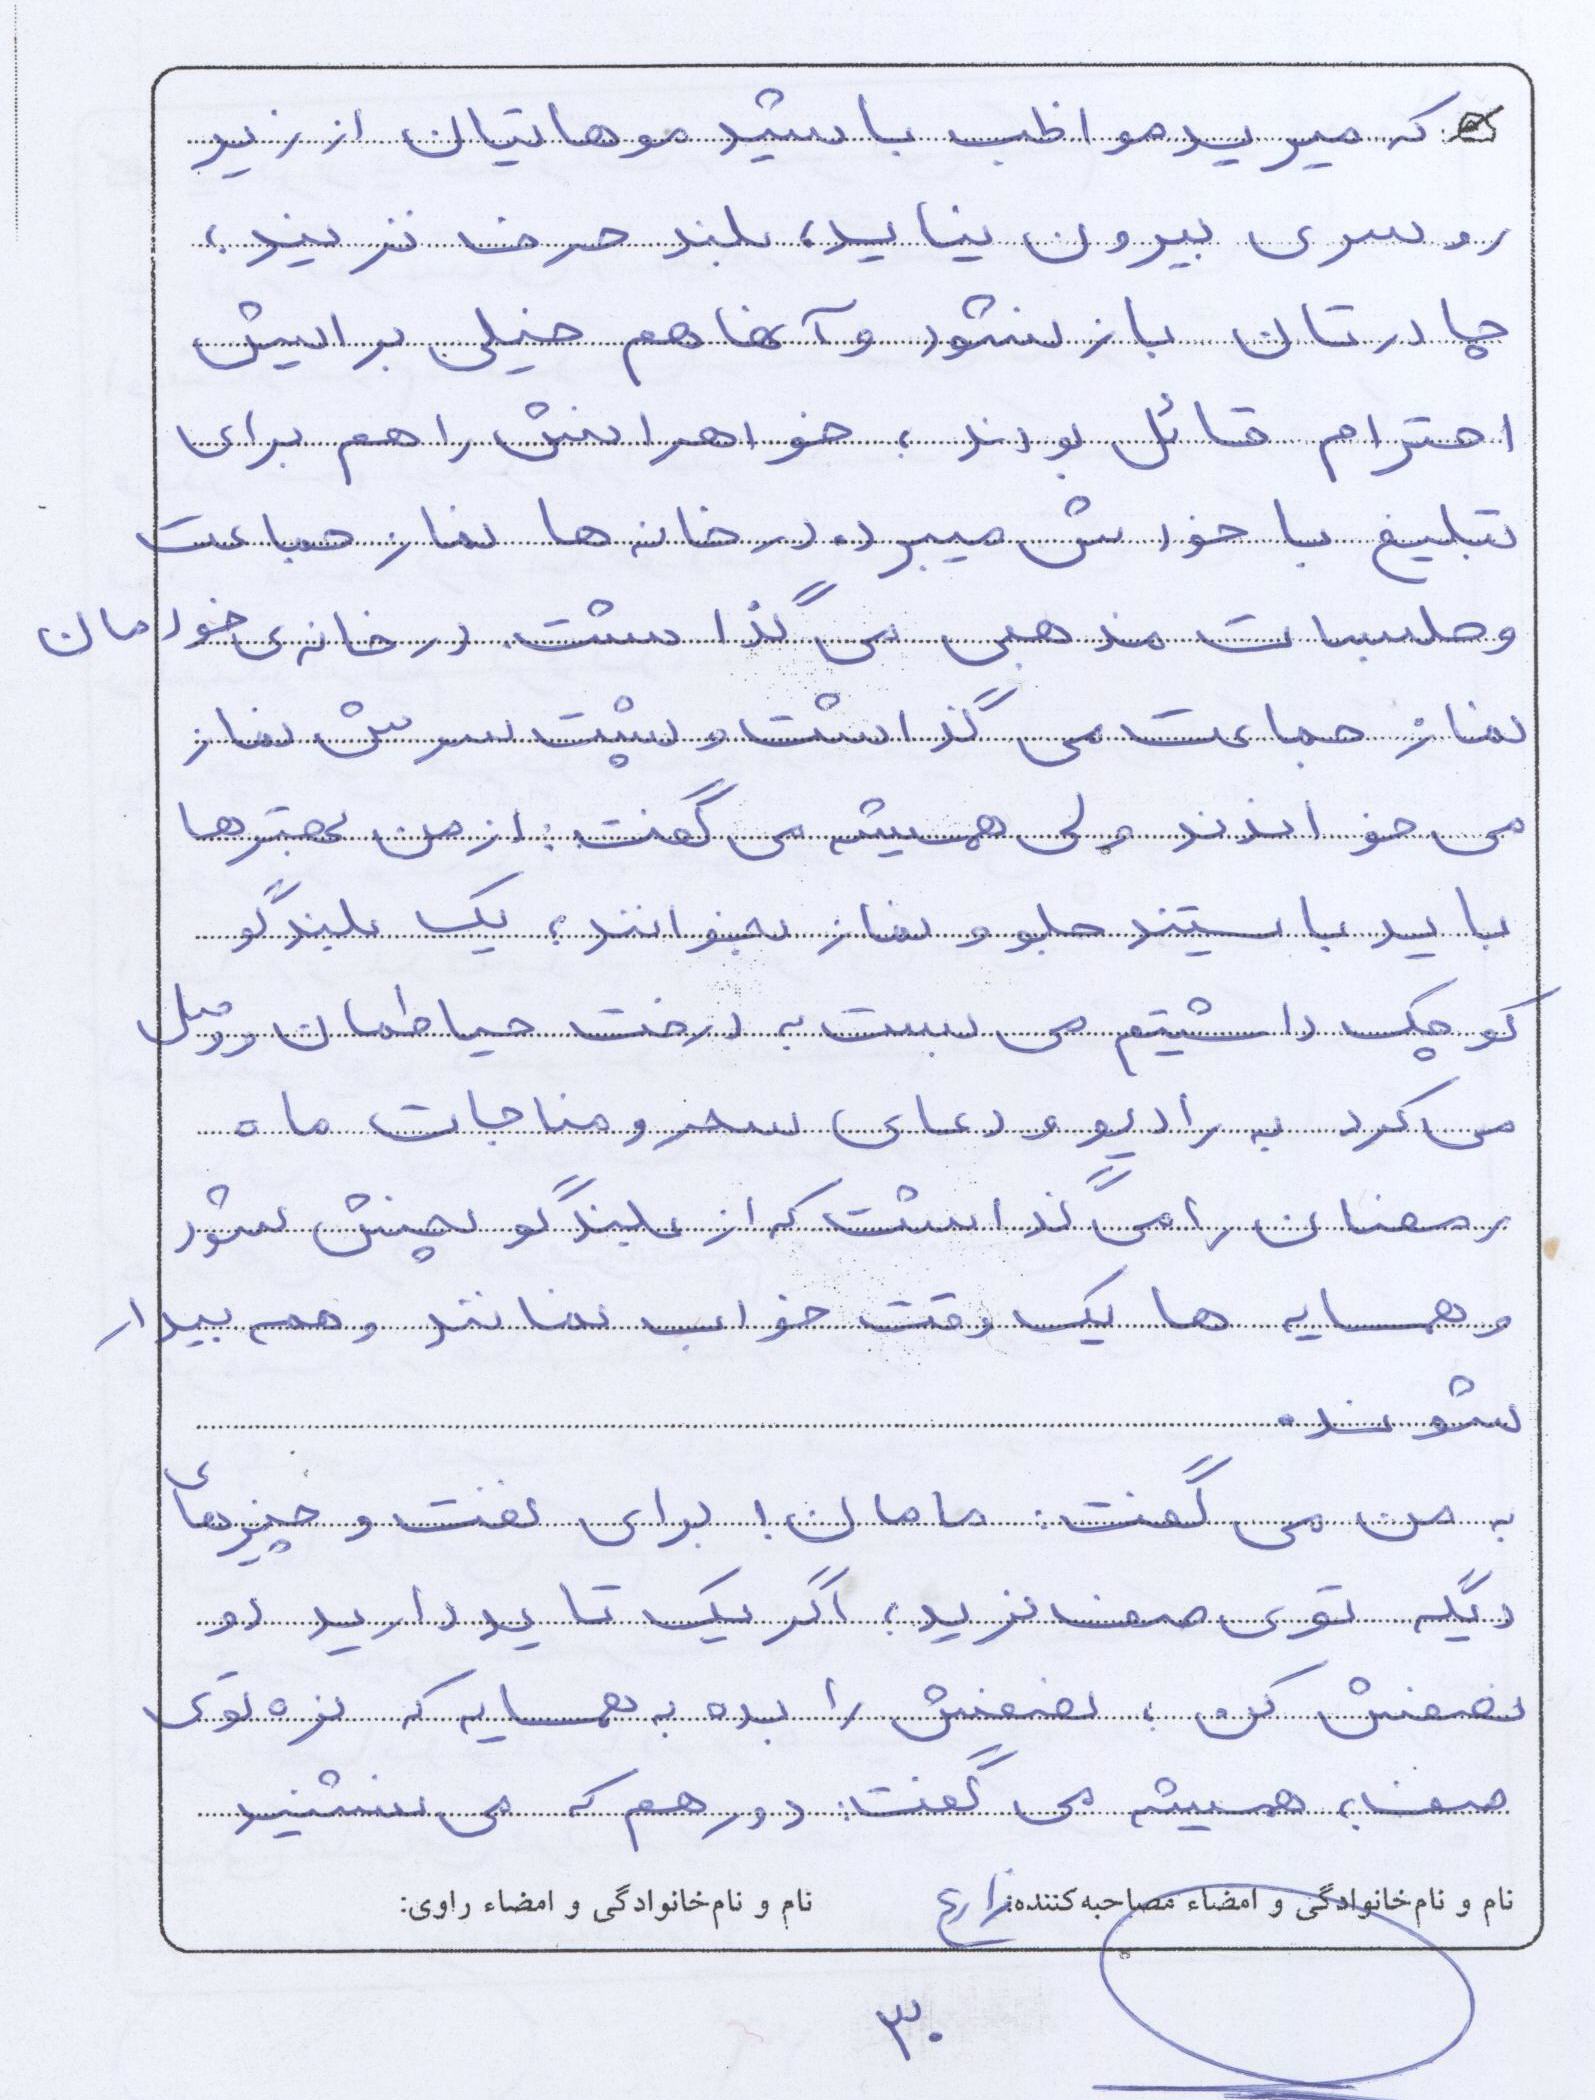 که میرید مواظب باشید موهاتیان از زیر
روسری بیرون نیاید، بلند حرف نزنید،
چادرتان باز نشود و آنها هم خیلی برایش
احترام قائل بودند، خواهرانش را هم برای
تبلیغ با خودش میبرد. در خانه ها نماز جماعت
و جلسات مذهبی می گذاشت. در خانه‌ی خودمان
نماز جماعت می گذاشت و پشت سرش نماز
می خواندند ولی همیشه می گفت: از من بهترها
باید بایستند جلو و نماز بخوانند، یک بلندگو
کوچک داشتیم می بست به درخت حیاطمان و وصل
می کرد به رادیو و دعای سحر و مناجات ماه
رمضان را می گذاشت که از بلندگو پخش شود
و همسایه ها یک وقت خواب نمانند و همه بیدار
شوند.
به من می گفت: مامان! برای نفت و چیزهای
دیگه توی صف نرید، اگر یک تاید دارید دو
نصفش کن، نصفش را بده به همسایه که نره توی
صف، همیشه می گفت: دور هم که می نشنید
نام و نام‌خانوادگی و امضاء مصاحبه‌کننده: زارع
نام و نام‌خانوادگی و امضاء راوی:
۳۰